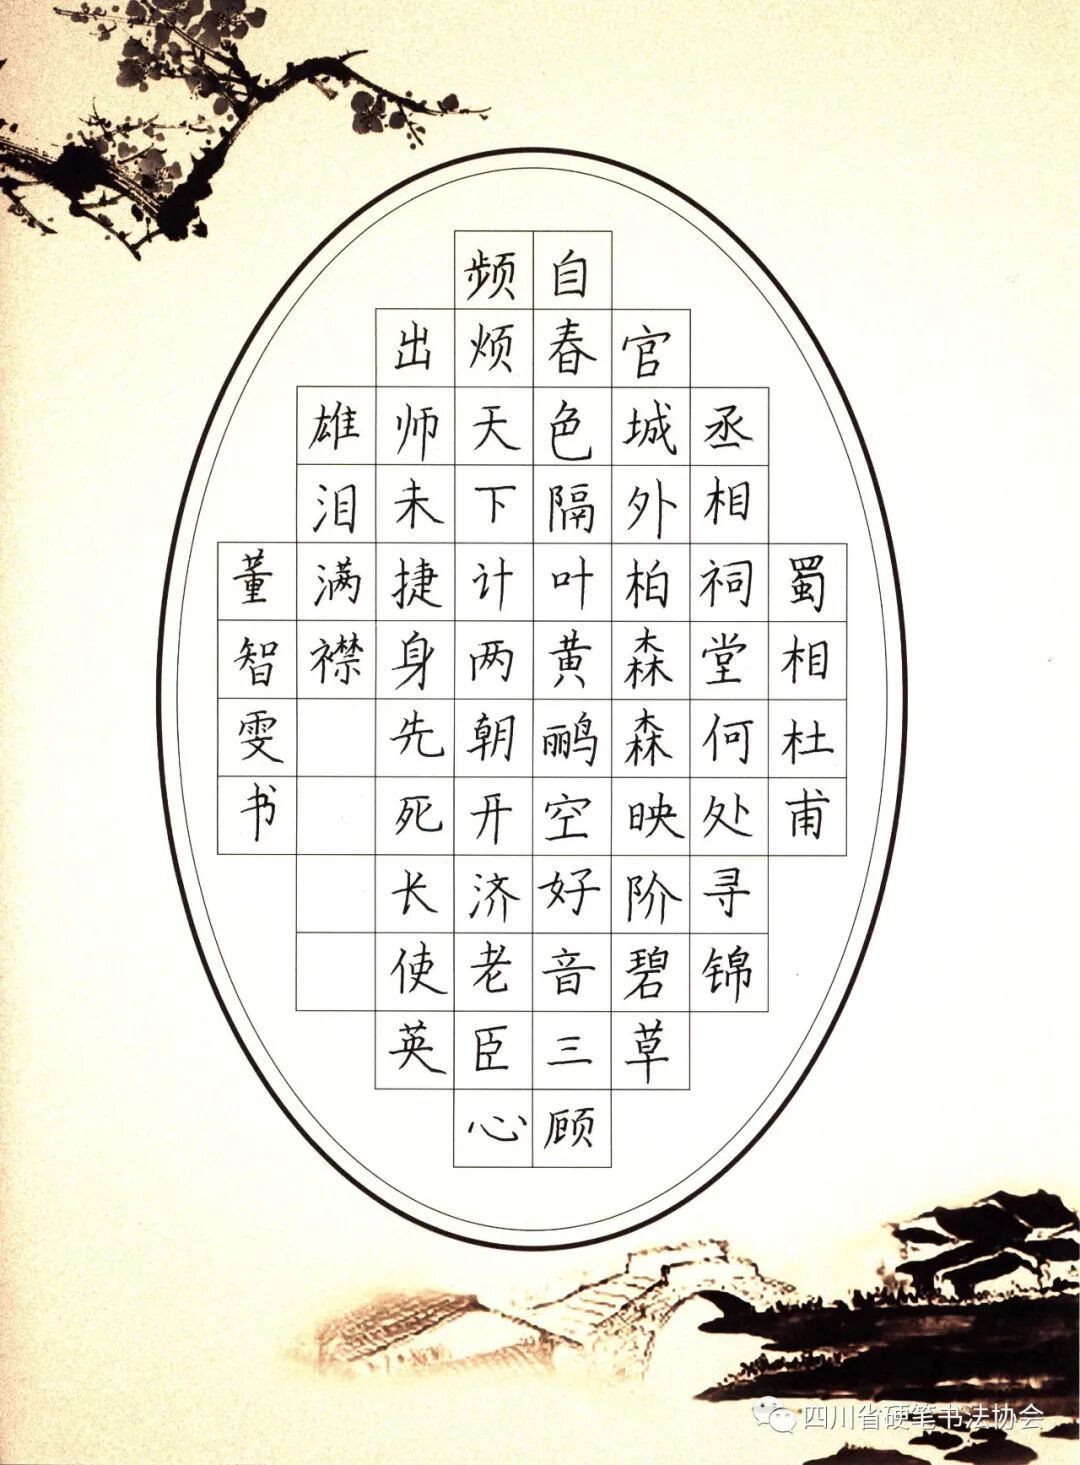 蜀相杜甫
丞相祠堂何处寻锦
官城外柏森森映阶碧草
自春色隔叶黄鹂空好音三顾
频烦天下计两朝开济老臣心
出师未捷身先死长使英
雄泪满襟
董智雯书
四川省硬笔书法协会